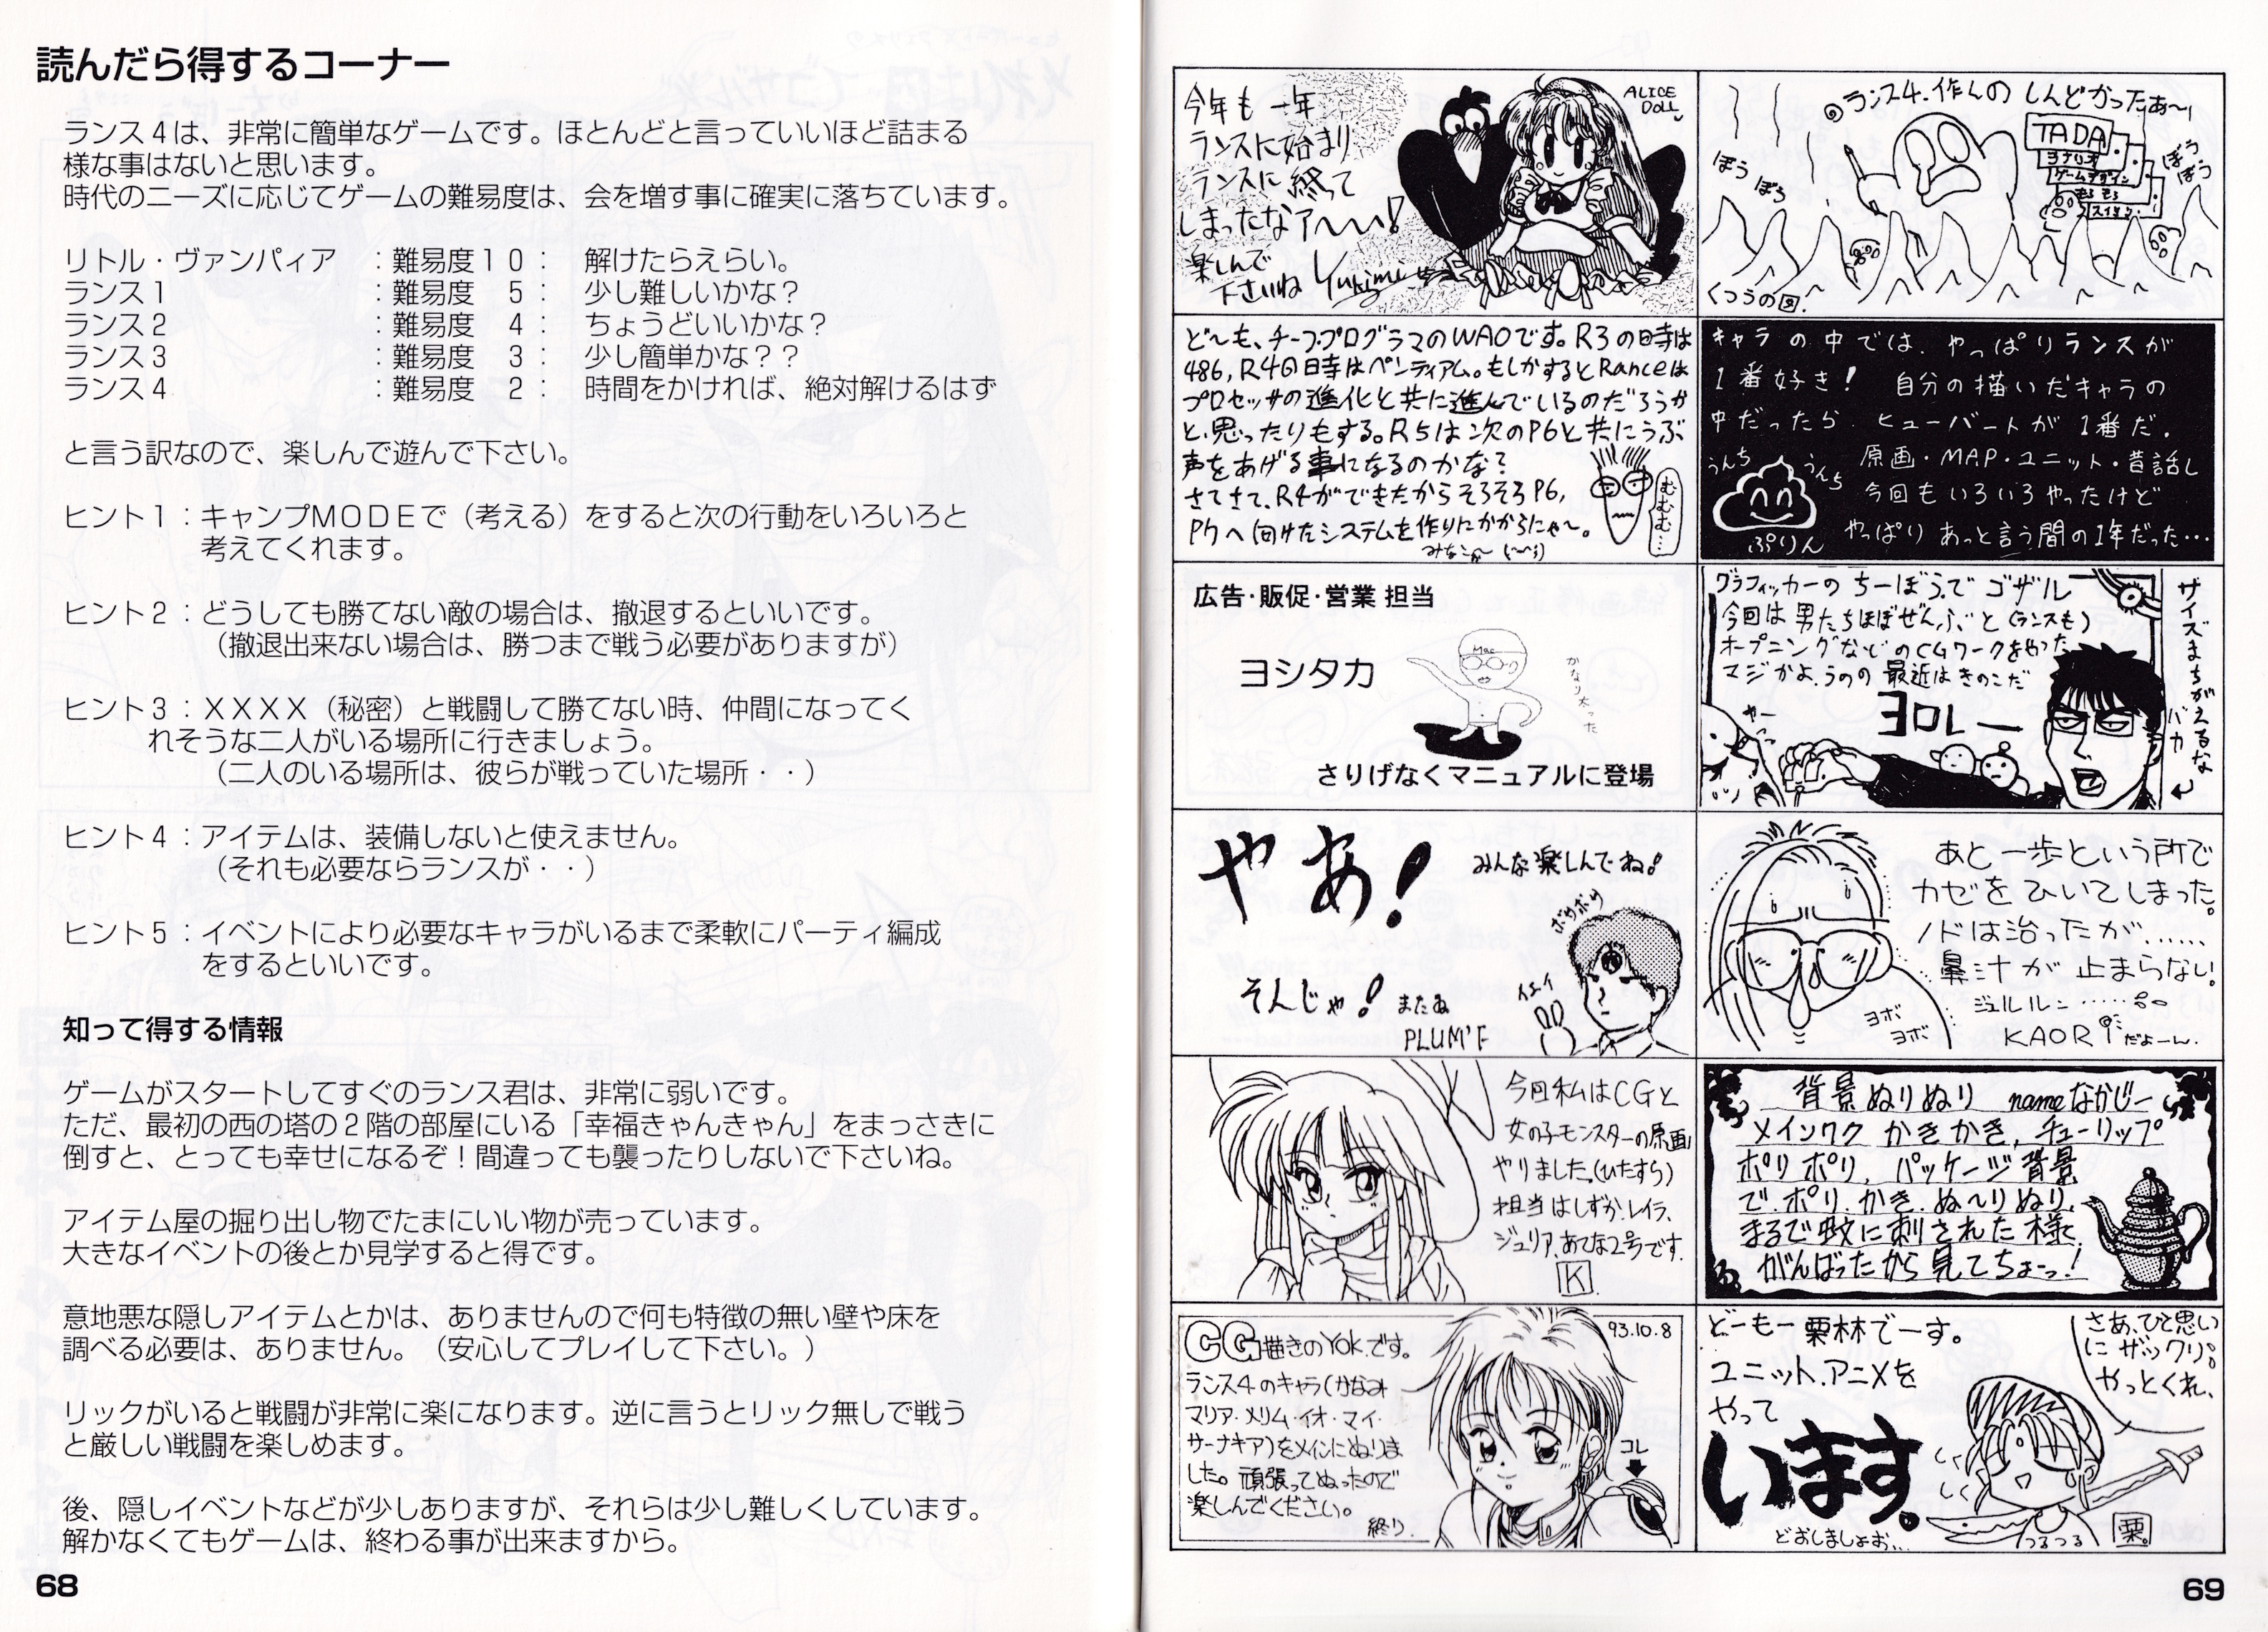 読んだら得するコーナー
ランス4は、非常に簡単なゲームです。ほとんどと言っていいほど詰まる
様な事はないと思います。
時代のニーズに応じてゲームの難易度は、会を増す事に確実に落ちています。
リトル・ヴァンパィア : 難易度10 : 解けたらえらい。
ランス1 : 難易度 5 : 少し難しいかな?
ランス2 : 難易度 4 : ちょうどいいかな?
ランス3 : 難易度 3 : 少し簡単かな??
ランス4 : 難易度 2 : 時間をかければ、絶対解けるはず
と言う訳なので、楽しんで遊んで下さい。
ヒント1:キャンプMODEで(考える)をすると次の行動をいろいろと
考えてくれます。
ヒント2:どうしても勝てない敵の場合は、撤退するといいです。
(撤退出来ない場合は、勝つまで戦う必要がありますが)
ヒント3:XXXX(秘密)と戦闘して勝てない時、仲間になってく
れそうな二人がいる場所に行きましょう。
(二人のいる場所は、彼らが戦っていた場所・・)
ヒント4:アイテムは、装備しないと使えません。
(それも必要ならランスが・・)
ヒント5:イベントにより必要なキャラがいるまで柔軟にパーティ編成
をするといいです。
知って得する情報
ゲームがスタートしてすぐのランス君は、非常に弱いです。
ただ、最初の西の塔の2階の部屋にいる「幸福きゃんきゃん」をまっさきに
倒すと、とっても幸せになるぞ!間違っても襲ったりしないで下さいね。
アイテム屋の掘り出し物でたまにいい物が売っています。
大きなイベントの後とか見学すると得です。
意地悪な隠しアイテムとかは、ありませんので何も特徴の無い壁や床を
調べる必要は、ありません。(安心してプレイして下さい。)
リックがいると戦闘が非常に楽になります。逆に言うとリック無しで戦う
と厳しい戦闘を楽しめます。
後、隠しイベントなどが少しありますが、それらは少し難しくしています。
解かなくてもゲームは、終わる事が出来ますから。
68
今年も一年
ランスに始まり
ランスに終って
しまったなァ〜〜!
楽しんで
下さいね Yukimi
ALICE
DOLL
ランス4.作んの しんどかったぁ〜
TADA
シナリオ
ゲームデザイン
ぼう ぼう
ぼう
ぼう
くつうの図.
ど〜も、チーフプログラマのWAOです。R3の時は
486,R4の時はペンティアム。もしかするとRanceは
プロセッサの進化と共に進んでいるのだろうか
と、思ったりもする。R5は次のP6と共にうぶ
声をあげる事になるのかな?
さてさて、R4ができたからそろそろP6,
P7へ向けたシステムを作りにかからにゃ〜。
むむむ…
キャラの中では、やっぱりランスが
1番好き! 自分の描いたキャラの
中だったら ヒューバートが1番だ.
原画・MAP・ユニット・昔話し
今回もいろいろやったけど
やっぱり あっと言う間の1年だった…
うんち
うんち
ぷりん
広告・販促・営業 担当
ヨシタカ
Mac
かなり太った
さりげなくマニュアルに登場
グラフィッカーの ちーぼうで ゴザル
今回は男たちほぼぜんぶと(ランスも)
オープニングなどのCGワークをやった
マジかよ.うのの 最近はきのこだ
ヨロレー
サイズまちがえるな
バカ
やあ!
みんな楽しんでね!
ボサボサ
イエイ
そんじゃ! またね
PLUM'F
あと一歩という所で
カゼをひいてしまった。
ノドは治ったが……
鼻汁が止まらない!
ジュルルン……
ヨボ
ヨボ
KAORI だよーん.
今回私はCGと
女の子モンスターの原画
やりました。(ひたすら)
担当はしずか.レイラ、
ジュリア.あてな2号です.
K
背景ぬりぬり nameなかじー
メインワク かきかき, チューリップ
ポリポリ, パッケージ背景
で.ポリ.かき.ぬ〜りぬり.
まるで蚊に刺された様に
がんばったから見てちょーっ!
CG描きのYOK.です。
ランス4のキャラ(かなみ
マリア・メリム・イオ・マイ・
サーナキア)をメインにぬりま
した。頑張ってぬったので
楽しんでください。
終り.
93.10.8
コレ
どーもー栗林でーす。
ユニット.アニメを
やって
います。
どおしましょお…
さあ、ひと思い
にザックリ
やっとくれ、
つるつる
栗。
69